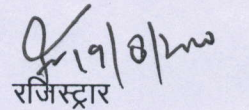 19/8/2020
रजिस्ट्रार